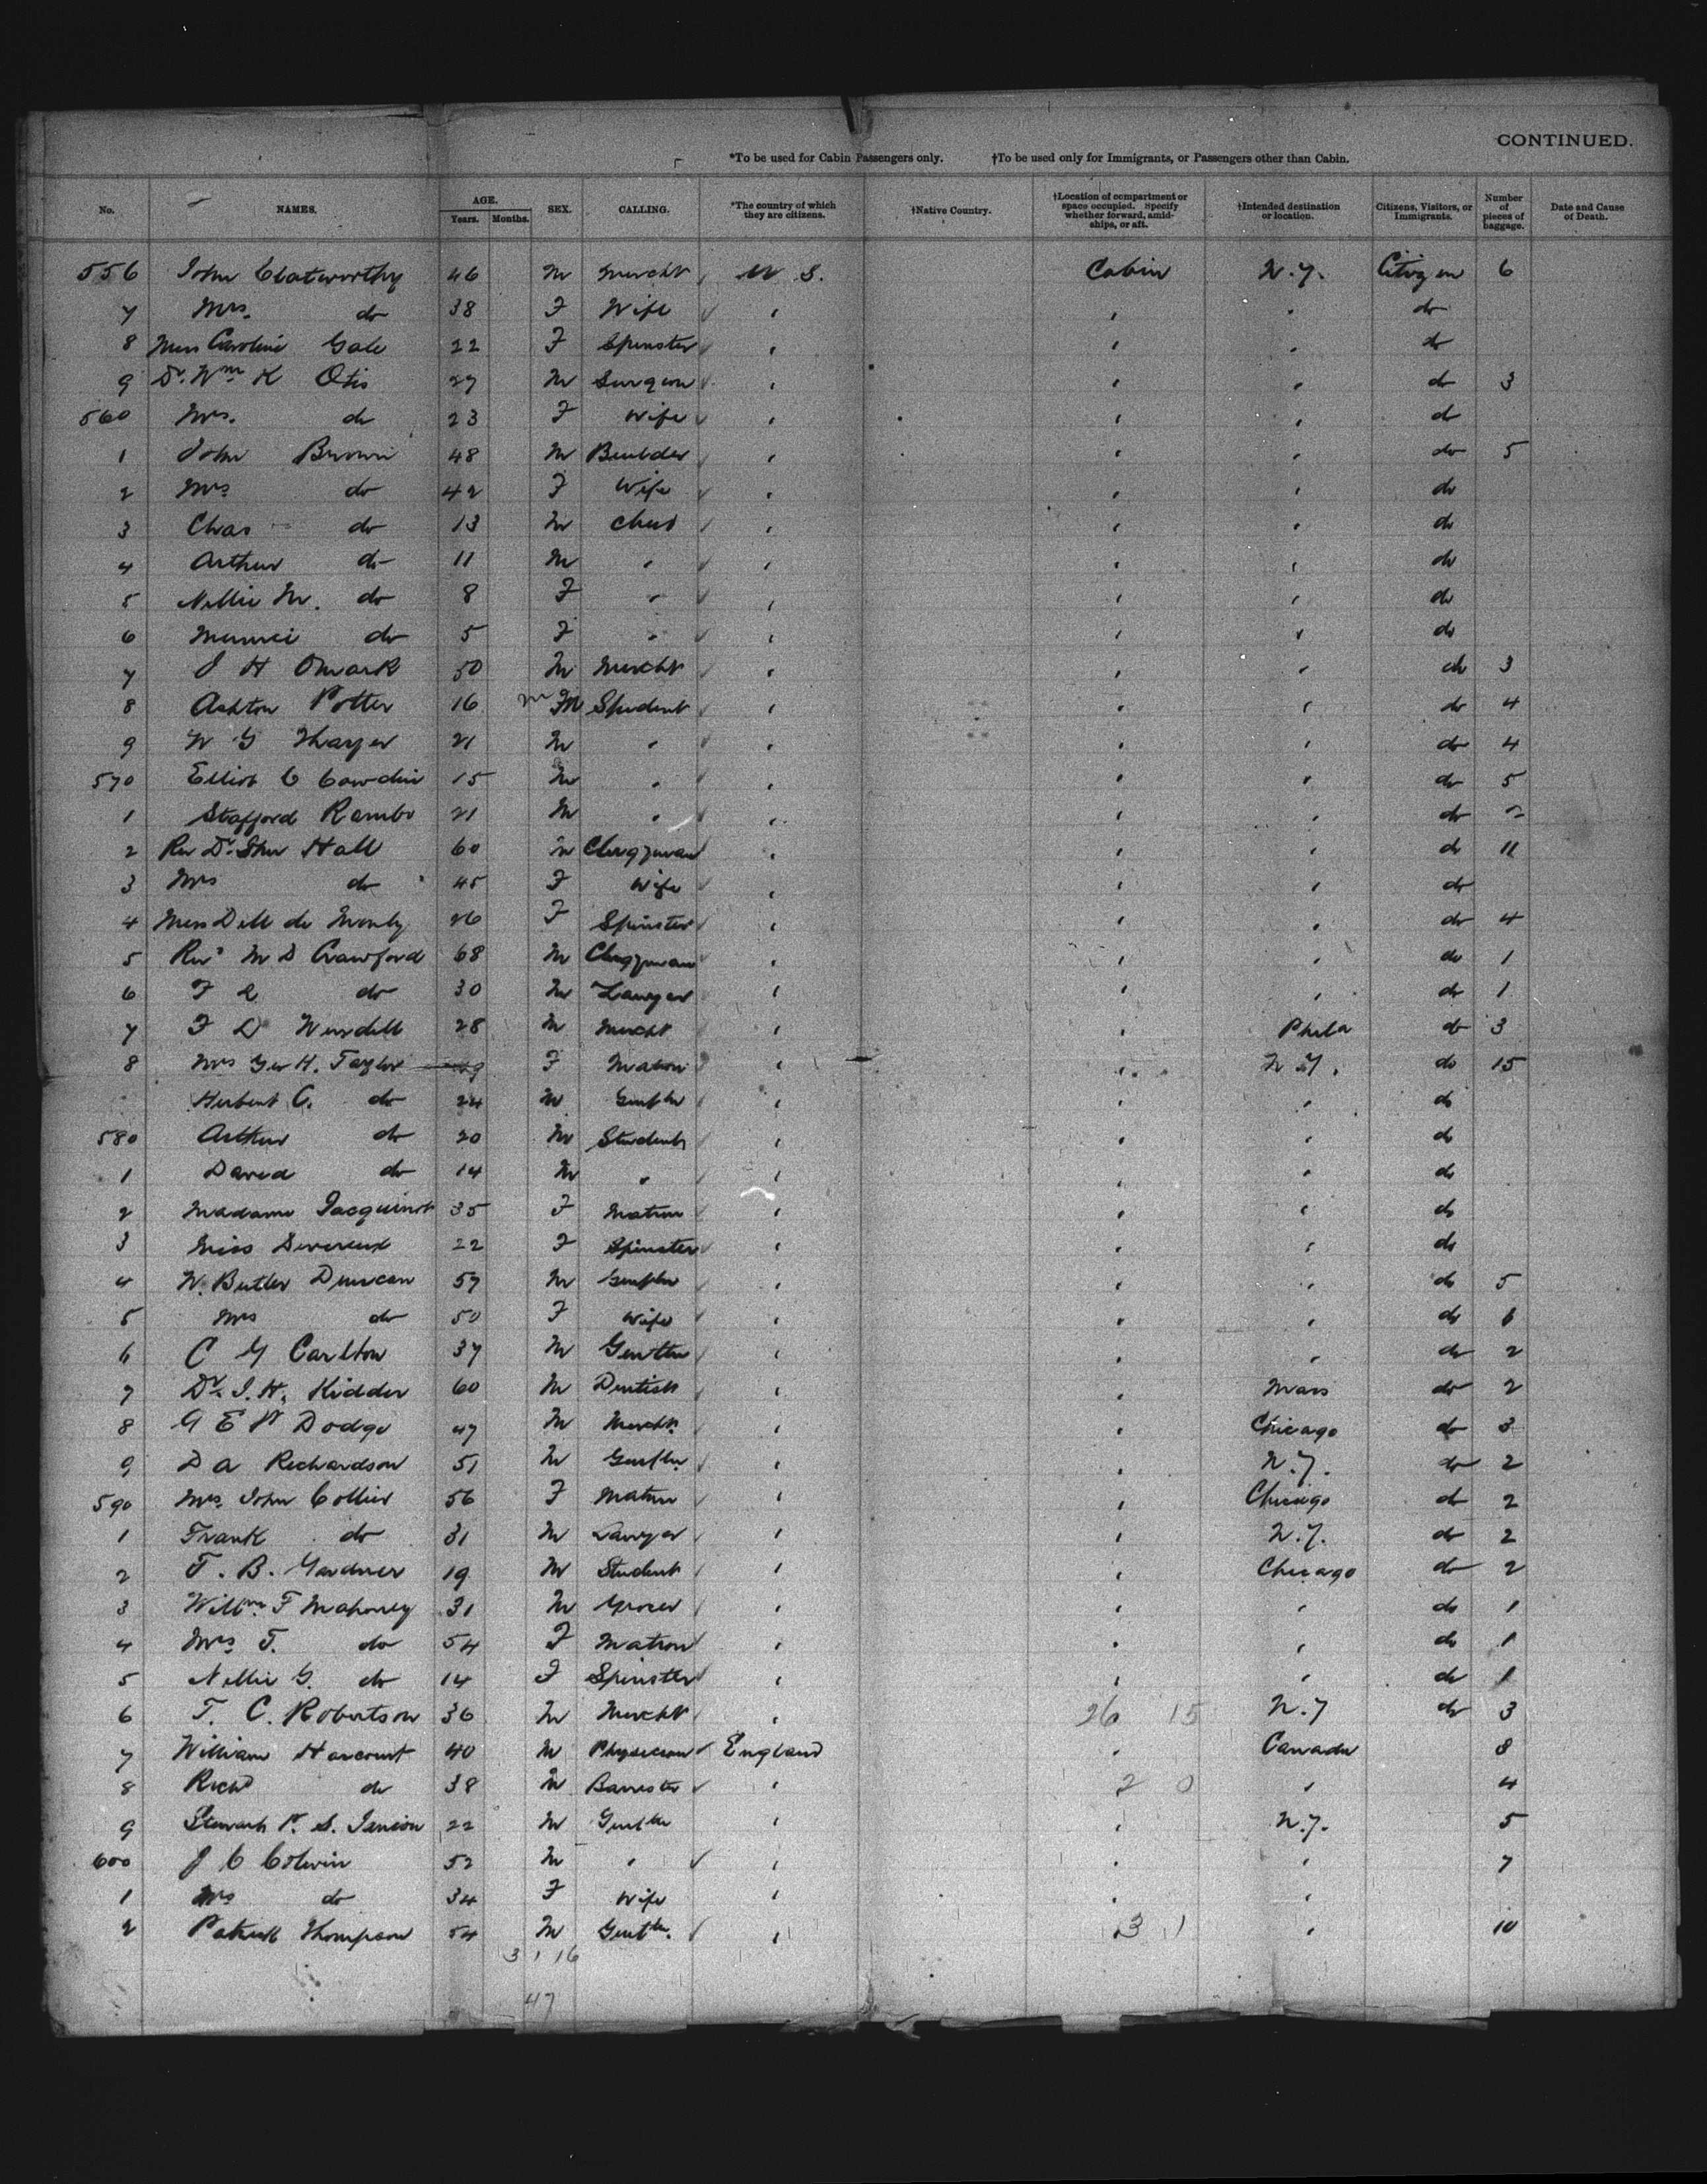 CONTINUED.
*To be used for Cabin Passengers only. †To be used only for Immigrants, or Passengers other than Cabin.
No. NAMES. AGE. Years. Months. SEX. CALLING. *The country of which they are citizens. †Native Country. †Location of compartment or space occupied. Specify whether forward, amidships, or aft. †Intended destination or location. Citizens, Visitors, or Immigrants. Number of pieces of baggage. Date and Cause of Death.
556 John Clatworthy 46 M Mercht U S. Cabin N.Y. Citizen 6
7 Mrs. do 38 F Wife ✓ " " " do
8 Miss Caroline Gale 22 F Spinster ✓ " " " do
9 Dr. Wm K Otis 27 M Surgeon ✓ " " " do 3
560 Mrs. do 23 F Wife ✓ " " " do
1 John Brown 48 M Builder " " " do 5
2 Mrs do 42 F Wife ✓ " " " do
3 Chas do 13 M Child ✓ " " " do
4 Arthur do 11 M " ✓ " " " do
5 Nellie M. do 8 F " ✓ " " " do
6 do 5 F " ✓ " " " do
7 J H 50 M Mercht ✓ " " " do 3
8 Ashton Potter 16 M Student ✓ " " " do 4
9 W G Thayer 21 M " ✓ " " " do 4
570 Elliot C Cowdin 15 M " " " " do 5
1 Stafford 21 M " ✓ " " " do 2
2 Rev Dr. Hall 60 M Clergyman " " " do 11
3 Mrs do 45 F Wife ✓ " " " do
4 Miss 26 F Spinster ✓ " " " do 4
5 Revd M D Crawford 68 M Clergyman " " " do 1
6 F do 30 M Lawyer " " " do 1
7 F D 28 M Mercht ✓ " " Phila do 3
8 Mrs Geo H. Taylor F Matron ✓ " " N.Y. do 15
Herbert A. do 24 M Gentln ✓ " " " do
580 Arthur do 20 M Student ✓ " " " do
1 David do 14 M " ✓ " " " do
2 Madame Jacquinot 35 F Matron ✓ " " " do
3 Miss Devereux 22 F Spinster ✓ " " " do
4 W. Butler Duncan 57 M Gentln ✓ " " " do 5
5 Mrs do 50 F Wife ✓ " " " do 6
6 C G Carlton 37 M Gentln ✓ " " " do 2
7 Dr. J. H. Kidder 60 M Dentist ✓ " " Mass do 2
8 G E P Dodge 47 M Mercht. ✓ " " Chicago do 3
9 D A Richardson 51 M Gentln. ✓ " " N.Y. do 2
590 Mrs. John Collier 56 F Matron ✓ " " Chicago do 2
1 Frank do 31 M Lawyer ✓ " " N.Y. do 2
2 T. B. Gardner 19 M Student ✓ " " Chicago do 2
3 Willm F Mahoney 31 M Grocer ✓ " " " do 1
4 Mrs T. do 54 F Matron " " " do 1
5 Nellie G. do 14 F Spinster " " " do 1
6 T. C. Robertson 36 M Mercht ✓ " 26 15 N.Y do 3
7 William Harcourt 40 M Physician ✓ England " Canada 8
8 Richd do 38 M Barrister ✓ " 2 0 " 4
9 Stewart 22 M Gentln " " N.Y. 5
600 J C Colwin 52 M " ✓ " " " 7
1 Mrs do 34 F Wife " " "
2 Patrick Thompson 54 M Gentln. ✓ " 3 1 " 10
3 1 16
47